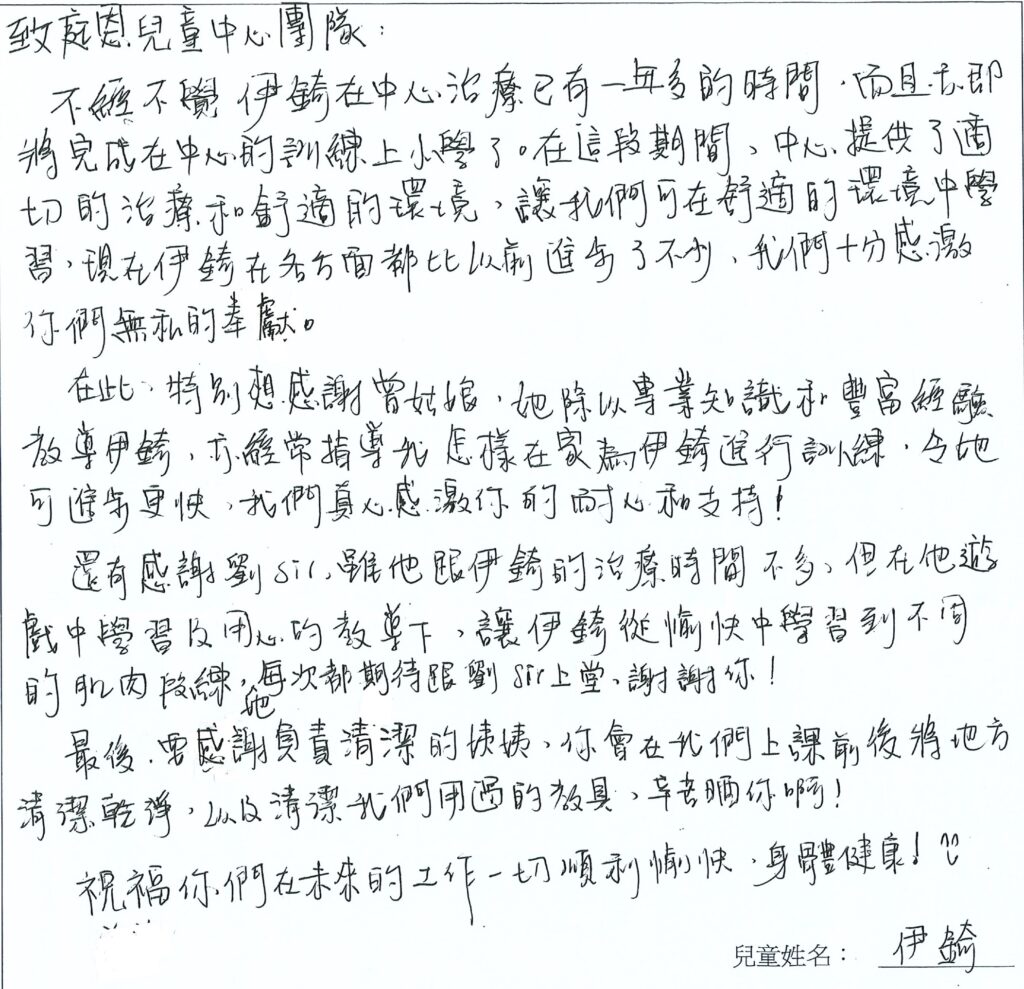 致庭恩兒童中心團隊：
不經不覺伊錡在中心治療已有一年多的時間，而且亦即
將完成在中心的訓練上小學了。在這段期間，中心提供了適
切的治療和舒適的環境，讓我們可在舒適的環境中學
習，現在伊錡在各方面都比以前進步了不少，我們十分感激
你們無私的奉獻。
在此，特別想感謝曾姑娘，她除以專業知識和豐富經驗
教導伊錡，亦經常指導我怎樣在家為伊錡進行訓練，令她
可進步更快，我們真心感激你的耐心和支持！
還有感謝劉sir，雖他跟伊錡的治療時間不多，但在他遊
戲中學習及用心的教導下，讓伊錡從愉快中學習到不同
的肌肉段練，她每次都期待跟劉sir上堂，謝謝你！
最後，要感謝負責清潔的姨姨，你會在我們上課前後將地方
清潔乾淨，以及清潔我們用過的教具，辛苦晒你啊！
祝福你們在未來的工作一切順利愉快，身體健康！
兒童姓名： 伊錡